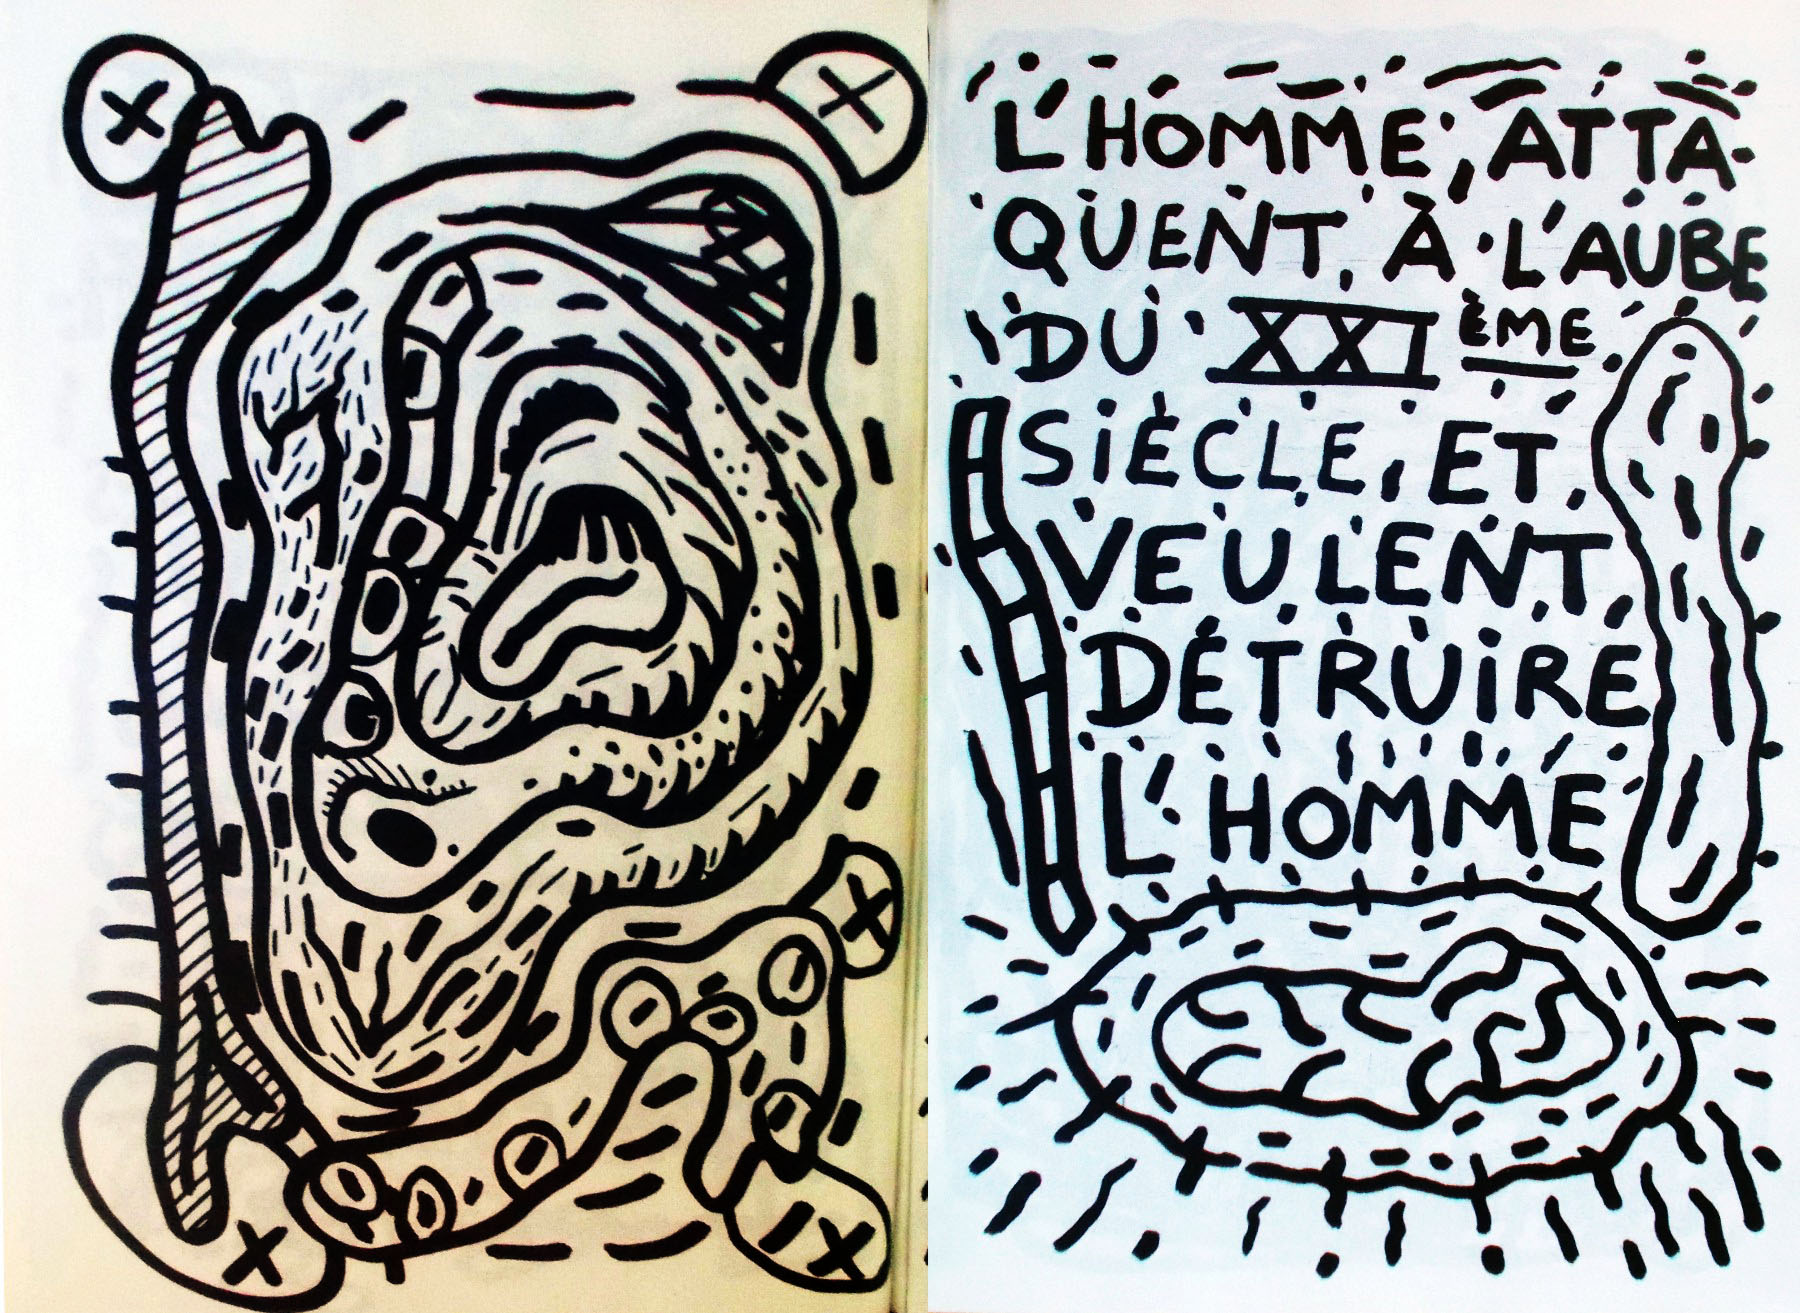 X
X
X
X
IX
L'HOMME, ATTA-
QUENT, À L'AUBE
DU XXI ÈME
SIÈCLE, ET
VEULENT
DÉTRUIRE
L'HOMME